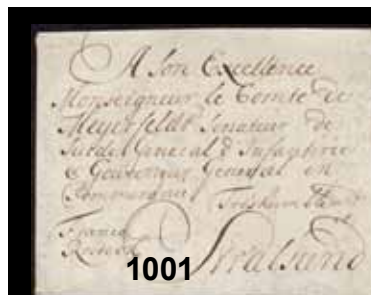 A Son Excellence
Monseigneur le Comte de
Meyerfeldt Senateur de
Suede General d'Infanterie
& Gouverneur General en
Pommeranie
Franco
Rostock
Stralsund
1001